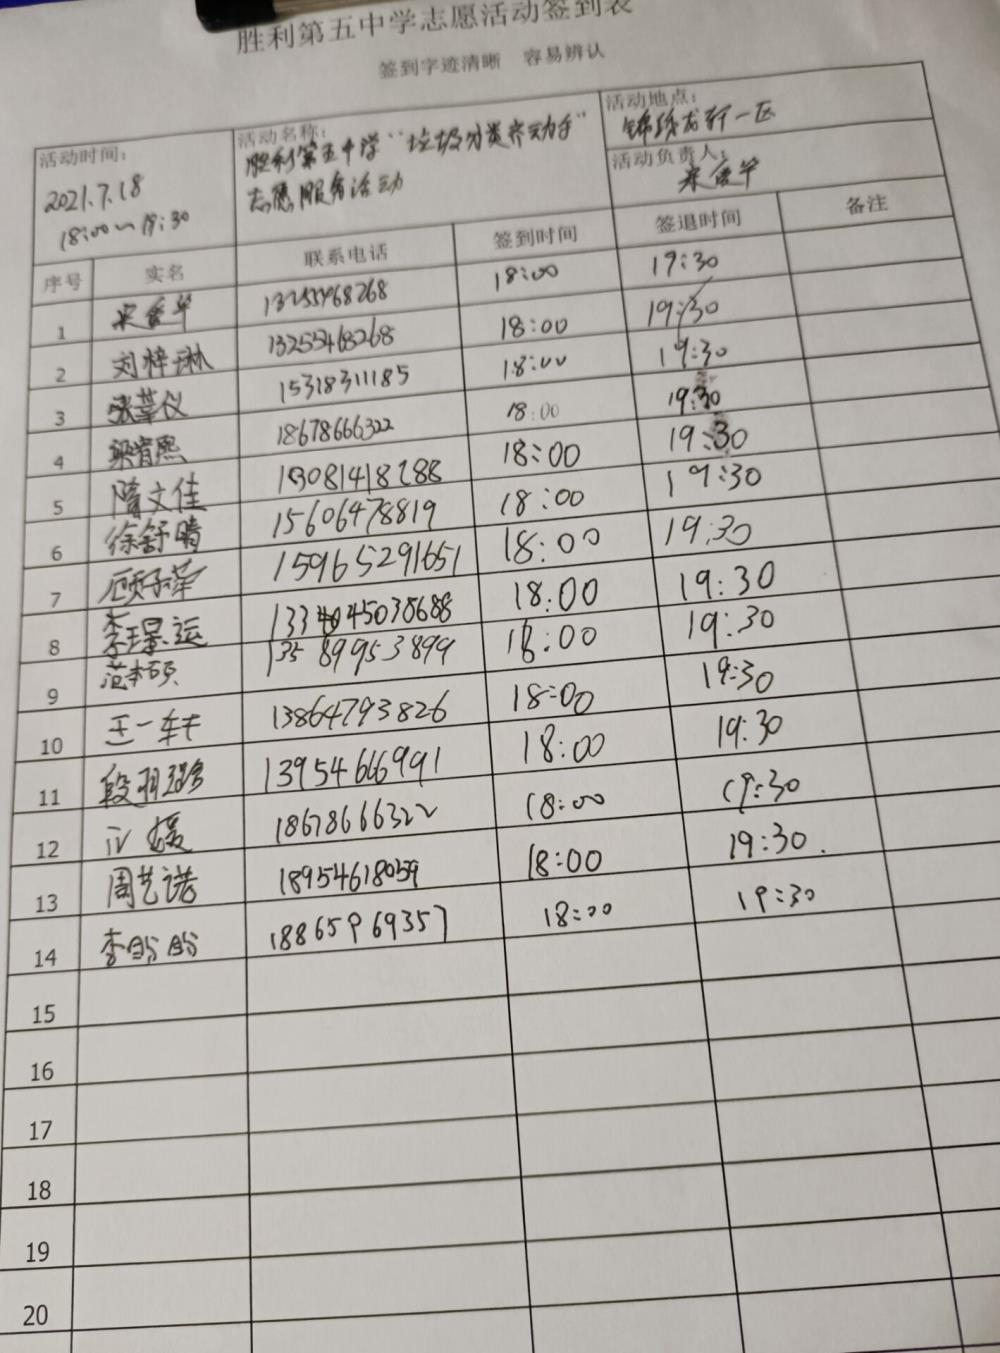 胜利第五中学志愿活动签到表
签到字迹清晰 容易辨认
活动时间：
2021.7.18
18:00~19:30
活动名称：
胜利第五中学“垃圾分类齐动手”
志愿服务活动
活动地点：
锦绣龙轩一区
活动负责人：
序号 实名 联系电话 签到时间 签退时间 备注
1 13255468268 18:00 19:30
2 刘梓琳 13255468268 18:00 19:30
3 张 仪 15318311185 18:00 19:30
4 梁肯熙 18678666322 18:00 19:30
5 隋文佳 15081418288 18:00 19:30
6 徐舒晴 15606478819 18:00 19:30
7 顾子荣 15965291651 18:00 19:30
8 李璟运 1334045038688 18:00 19:30
9 范本硕 13589953899 18:00 19:30
10 王一轩 13864793826 18:00 19:30
11 段羽 13954666991 18:00 19:30
12 18678666322 18:00 19:30
13 周艺诺 18954618059 18:00 19:30.
14 李 18865969357 18:00 19:30
15
16
17
18
19
20